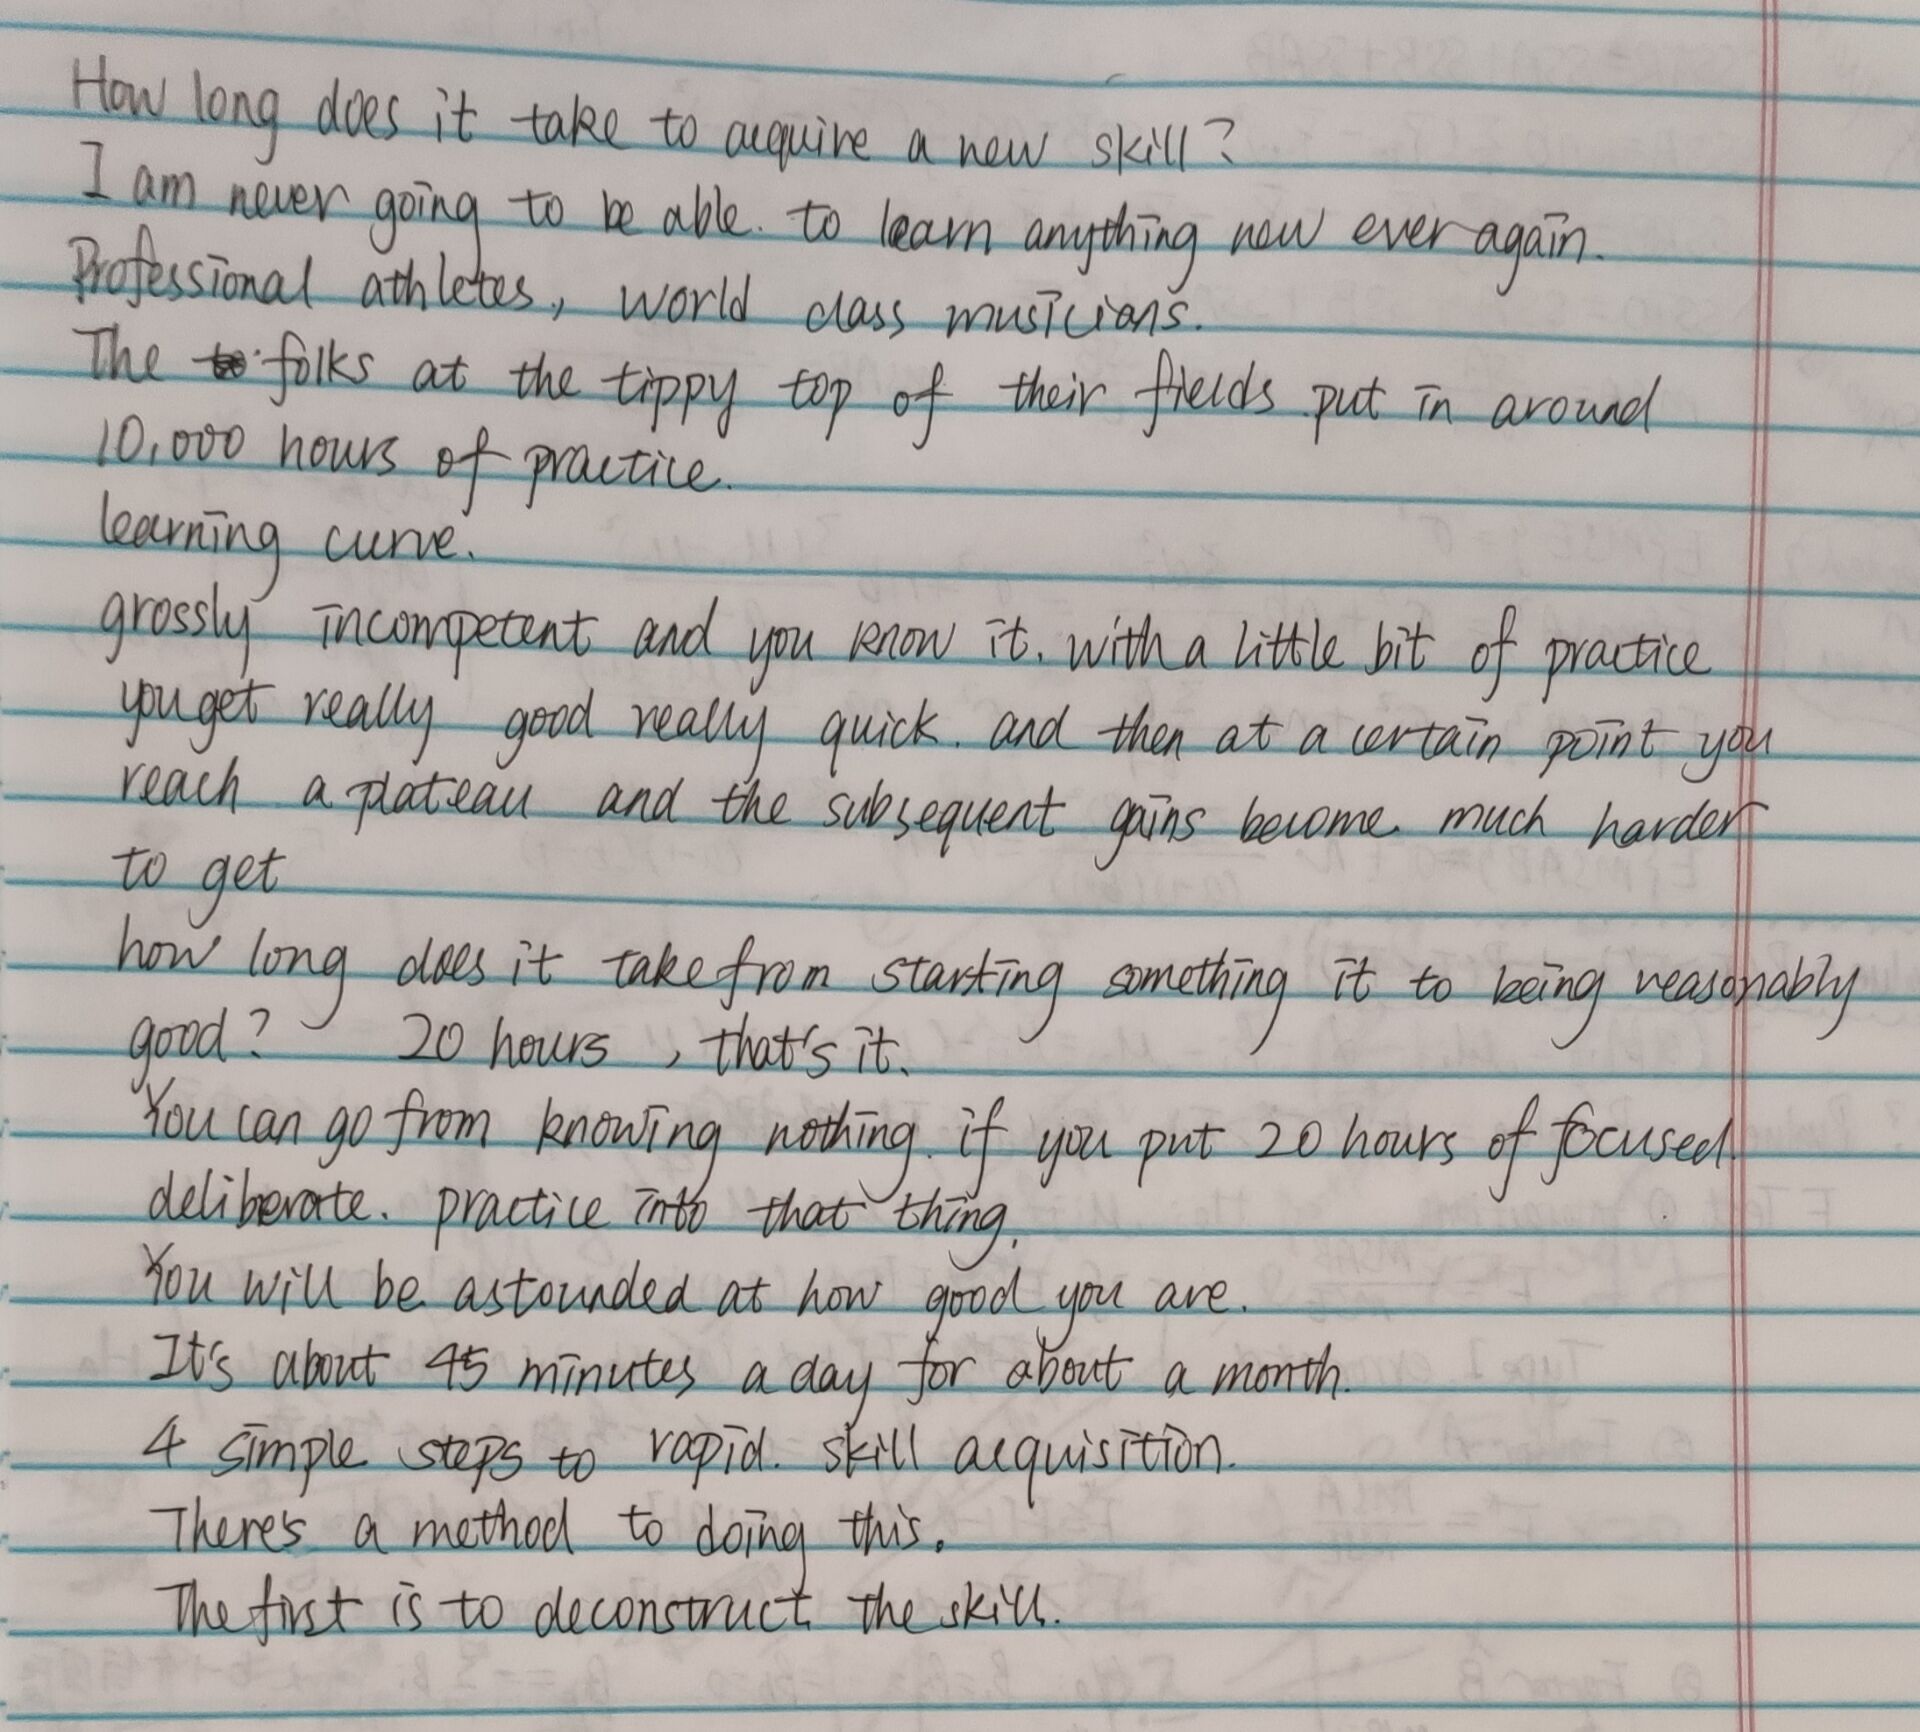 How long does it take to acquire a new skill?
I am never going to be able. to learn anything new ever again.
Professional athletes, world class musicians.
The folks at the tippy top of their fields put in around
10,000 hours of practice.
learning curve.
grossly incompetent and you know it. with a little bit of practice
you get really good really quick. and then at a certain point you
reach a plateau and the subsequent gains become much harder
to get
how long does it take from starting something it to being reasonably
good? 20 hours, that's it.
You can go from knowing nothing. if you put 20 hours of focused
deliberate. practice into that thing.
You will be astounded at how good you are.
It's about 45 minutes a day for about a month.
4 simple steps to rapid. skill acquisition.
There's a method to doing this.
The first is to deconstruct the skill.